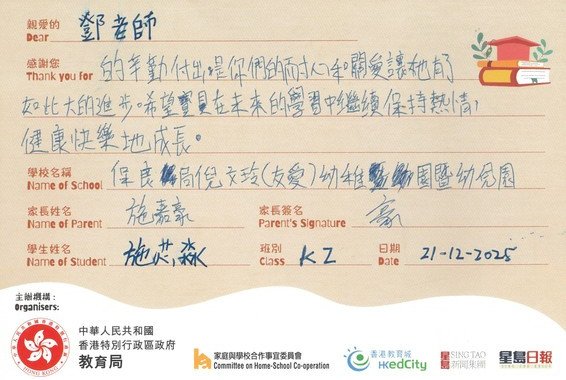 親愛的 鄧老師
Dear
感謝您 的辛勤付出,是你們的耐心和關愛讓他有了
Thank you for
如此大的進步。希望寶貝在未來的學習中繼續保持熱情,
健康快樂地成長。
學校名稱 保良局倪文玲(友愛)幼稚園暨幼兒園
Name of School
家長姓名 施嘉豪 家長簽名 豪
Name of Parent Parent's Signature
學生姓名 施芯淼 班別 K2 日期 21-12-2025
Name of Student Class Date
主辦機構:
Organisers:
中華人民共和國
香港特別行政區政府
教育局
家庭與學校合作事宜委員會
Committee on Home-School Co-operation
香港教育城
HKedCity
星島 SING TAO
新聞集團
星島日報